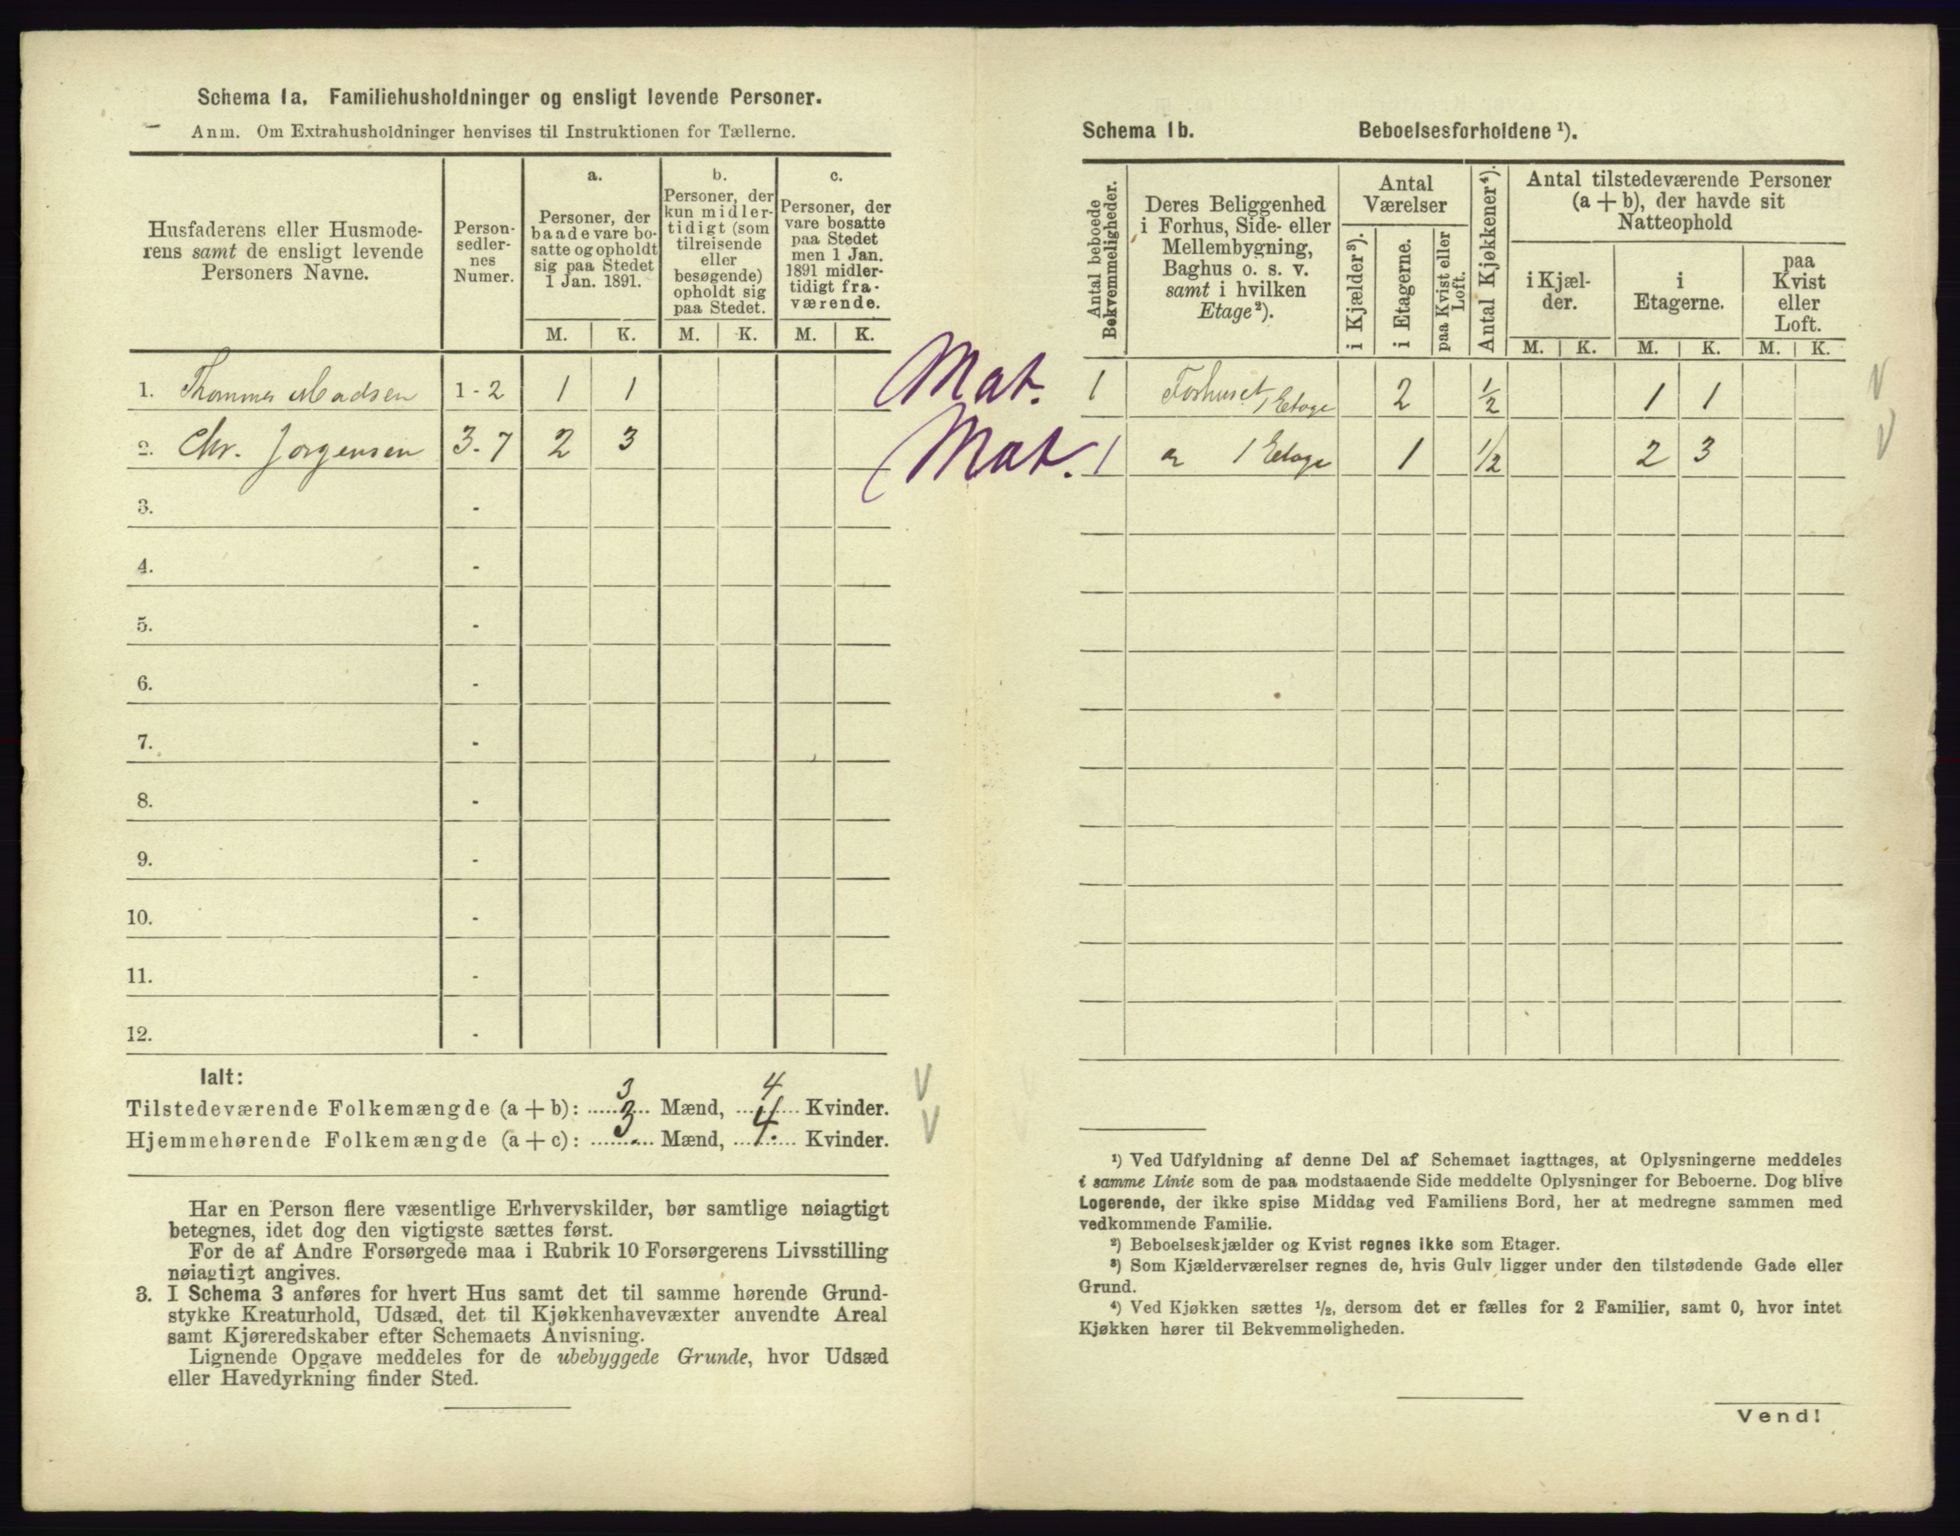 Schema 1a. Familiehusholdninger og ensligt levende Personer.
Anm. Om Extrahusholdninger henvises til Instruktionen for Tællerne.
Husfaderens eller Husmode-
rens samt de ensligt levende
Personers Navne.
Person-
sedler-
nes
Numer.
a.
Personer, der
baade vare bo-
satte og opholdt
sig paa Stedet
1 Jan. 1891.
b.
Personer, der
kun midler-
tidigt (som
tilreisende
eller
besøgende)
opholdt sig
paa Stedet.
c.
Personer, der
vare bosatte
paa Stedet
men 1 Jan.
1891 midler-
tidigt fra-
værende.
M. K. M. K. M. K.
1. Thommas Madsen 1-2 1 1
2. Chr. Jørgensen 3-7 2 3
3. -
4. -
5. -
6. -
7. -
8. -
9. -
10. -
11. -
12. -
Ialt:
3 4
Tilstedeværende Folkemængde (a+b): 3 Mænd, Kvinder.
Hjemmehørende Folkemængde (a+c): Mænd, 4. Kvinder.
Har en Person flere væsentlige Erhvervskilder, bør samtlige nøiagtigt
betegnes, idet dog den vigtigste sættes først.
For de af Andre Forsørgede maa i Rubrik 10 Forsørgerens Livsstilling
nøiagtigt angives.
3. I Schema 3 anføres for hvert Hus samt det til samme hørende Grund-
stykke Kreaturhold, Udsæd, det til Kjøkkenhavevæxter anvendte Areal
samt Kjøreredskaber efter Schemaets Anvisning.
Lignende Opgave meddeles for de ubebyggede Grunde, hvor Udsæd
eller Havedyrkning finder Sted.
Schema 1b. Beboelsesforholdene ¹).
Antal beboede
Bekvemmeligheder.
Deres Beliggenhed
i Forhus, Side- eller
Mellembygning,
Baghus o. s. v.
samt i hvilken
Etage²).
Antal
Værelser
i Kjælder³).
i Etagerne.
paa Kvist eller
Loft.
Antal Kjøkkener⁴).
Antal tilstedeværende Personer
(a+b), der havde sit
Natteophold
i Kjæl-
der.
i
Etagerne.
paa
Kvist
eller
Loft.
M. K. M. K. M. K.
Mat. 1 Forhuset 1 Etage 2 1/2 1 1
Mat. 1 1 Etage 1 1/2 2 3
¹) Ved Udfyldning af denne Del af Schemaet iagttages, at Oplysningerne meddeles
i samme Linie som de paa modstaaende Side meddelte Oplysninger for Beboerne. Dog blive
Logerende, der ikke spise Middag ved Familiens Bord, her at medregne sammen med
vedkommende Familie.
²) Beboelseskjælder og Kvist regnes ikke som Etager.
³) Som Kjælderværelser regnes de, hvis Gulv ligger under den tilstødende Gade eller
Grund.
⁴) Ved Kjøkken sættes ½, dersom det er fælles for 2 Familier, samt 0, hvor intet
Kjøkken hører til Bekvemmeligheden.
Vend!